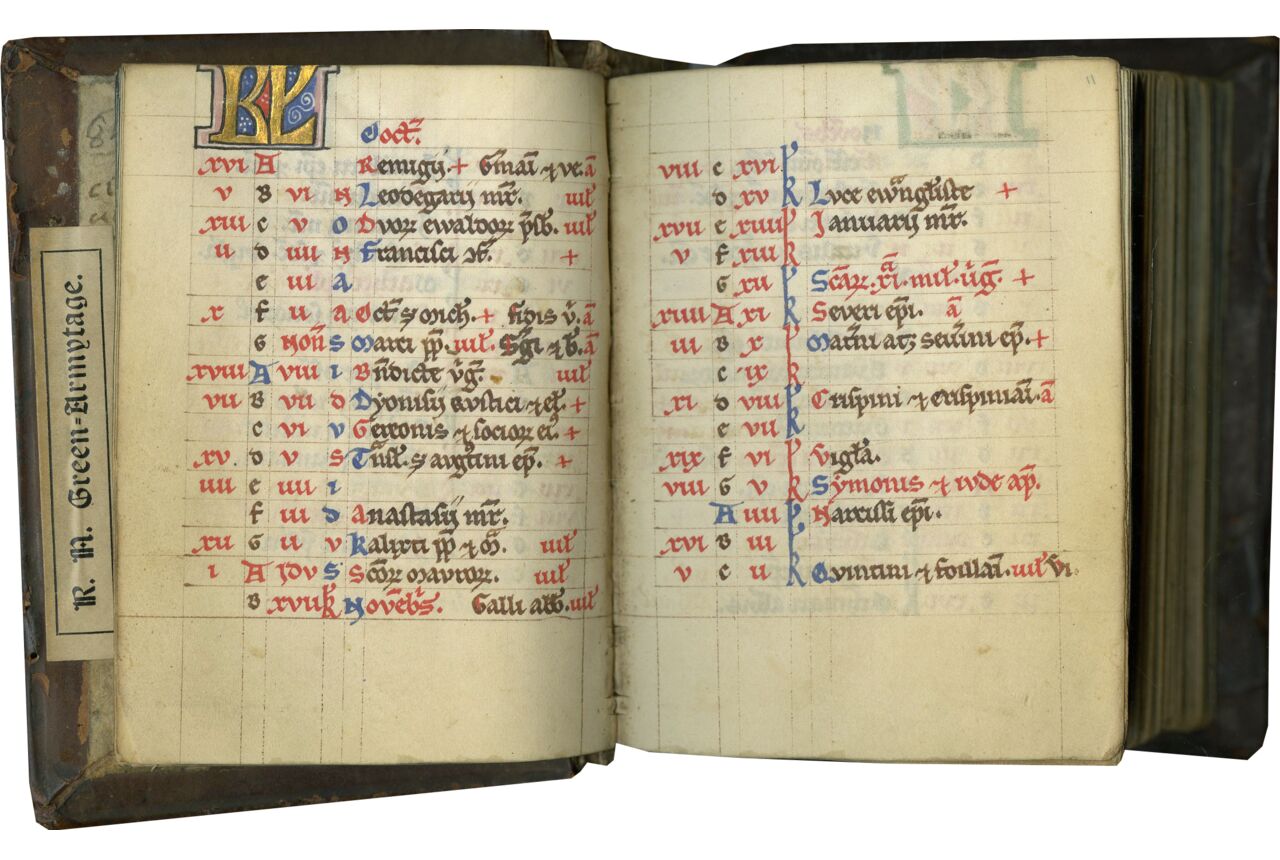 R. N. Green-Armytage.
KL Octr̄.
xvi A Remigij + Gmāi ⁊ ve. a
v B vi N Leodēgarij mr̄. iiil̄
xiii c v O Duorꝝ ewaldorꝝ p̄sb. iiil̄
ii d iiii N Francisci ɔf. +
e iii A
x f ii A Oct̄ s̄ Mich. + fidis v̄. a
G Non̄ S Marci pp̄. iiil̄. Sḡi ⁊ b̄. a
xviii A viii I Bn̄dicte v̄g. iiil̄
vii B vii D Dyonisij Rustici ⁊ el̄. +
c vi V Gereonis ⁊ sociorꝝ ei. +
xv d v S Tn̄sl. s̄ augustini ep̄. +
iiii e iiii I
f iii D Anastasij mr̄.
xii G ii V Kalixti pp̄ ⁊ m̄. iiil̄
i A Idvs S Scōrꝝ maurorꝝ. iiil̄
B xvii k̄ Novēbs̄. Galli abb̄. iiil̄
11
viii c xvi P
d xv K Luce ewāngliste +
xvii e xiiii P Januarij mr̄.
v f xiii K
G xii P Scārꝝ xi. mil. v̄g. +
xiiii A xi K Severi ep̄i. a
iii B x P Mat̄ni atꝫ sev̄ini ep̄. +
c ix K
xi d viii P Crispini ⁊ crispiniāi. a
e vii K
xix f vi P Vigl̄a.
viii G v K Symonis ⁊ iude ap̄.
A iiii P Narcissi ep̄i.
xvi B iii P
v c ii K Quintini ⁊ foillāi. iiil̄ vi.